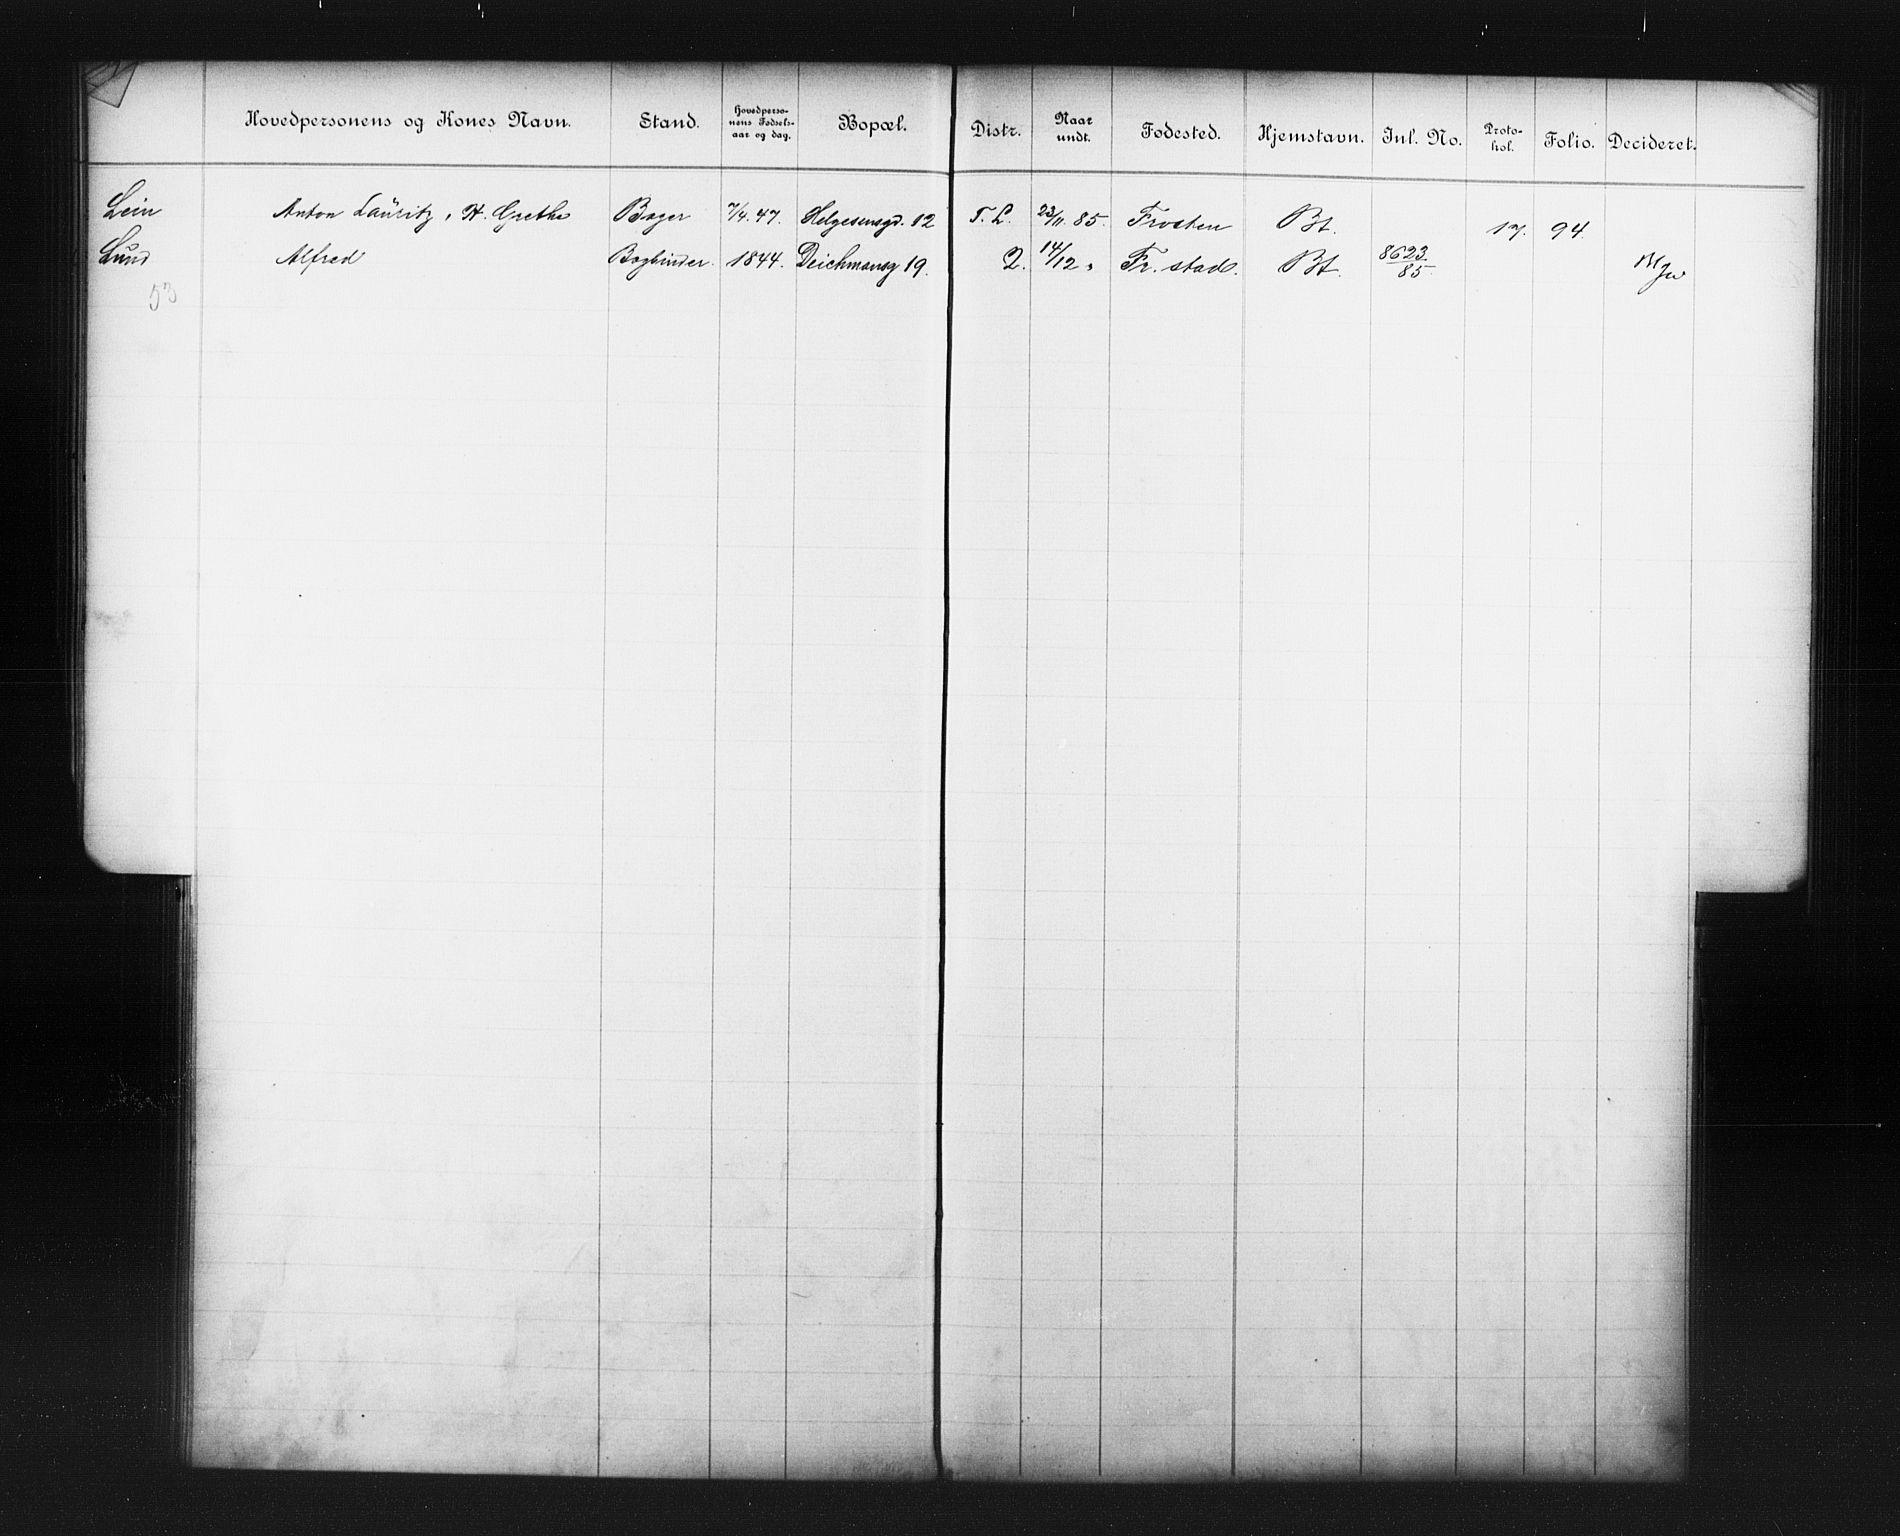 Hovedpersonens og Kones Navn. Stand. Hovedpersonens Fødselsaar og dag. Bopæl. Distr. Naar undt. Fødested. Hjemstavn. Inl. No. Protokol. Folio. Decideret.
Lein Anton Lauritz, H. Grethe Bager 7/4. 47. Helgesensgd. 12 T. L. 23/11. 85. Frosten Bt. 17. 94
Lund Alfred Bogbinder. 1844. Deichmansg 19. 2. 14/12 " Fr. stad. Bt. 8623/85.
53